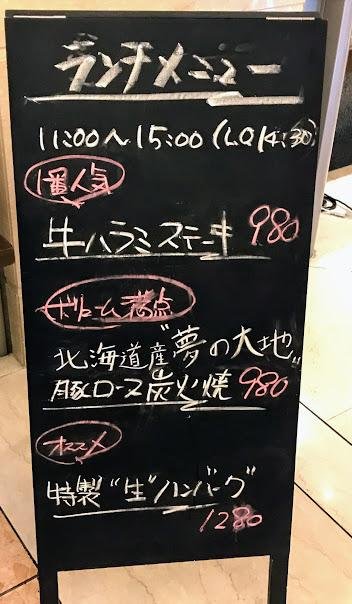 ランチメニュー
11:00〜15:00 (L.O 14:30)
1番人気
牛ハラミステーキ 980
ボリューム満点
北海道産"夢の大地"
豚ロース炭火焼 980
オススメ
特製"生"ハンバーグ
1280